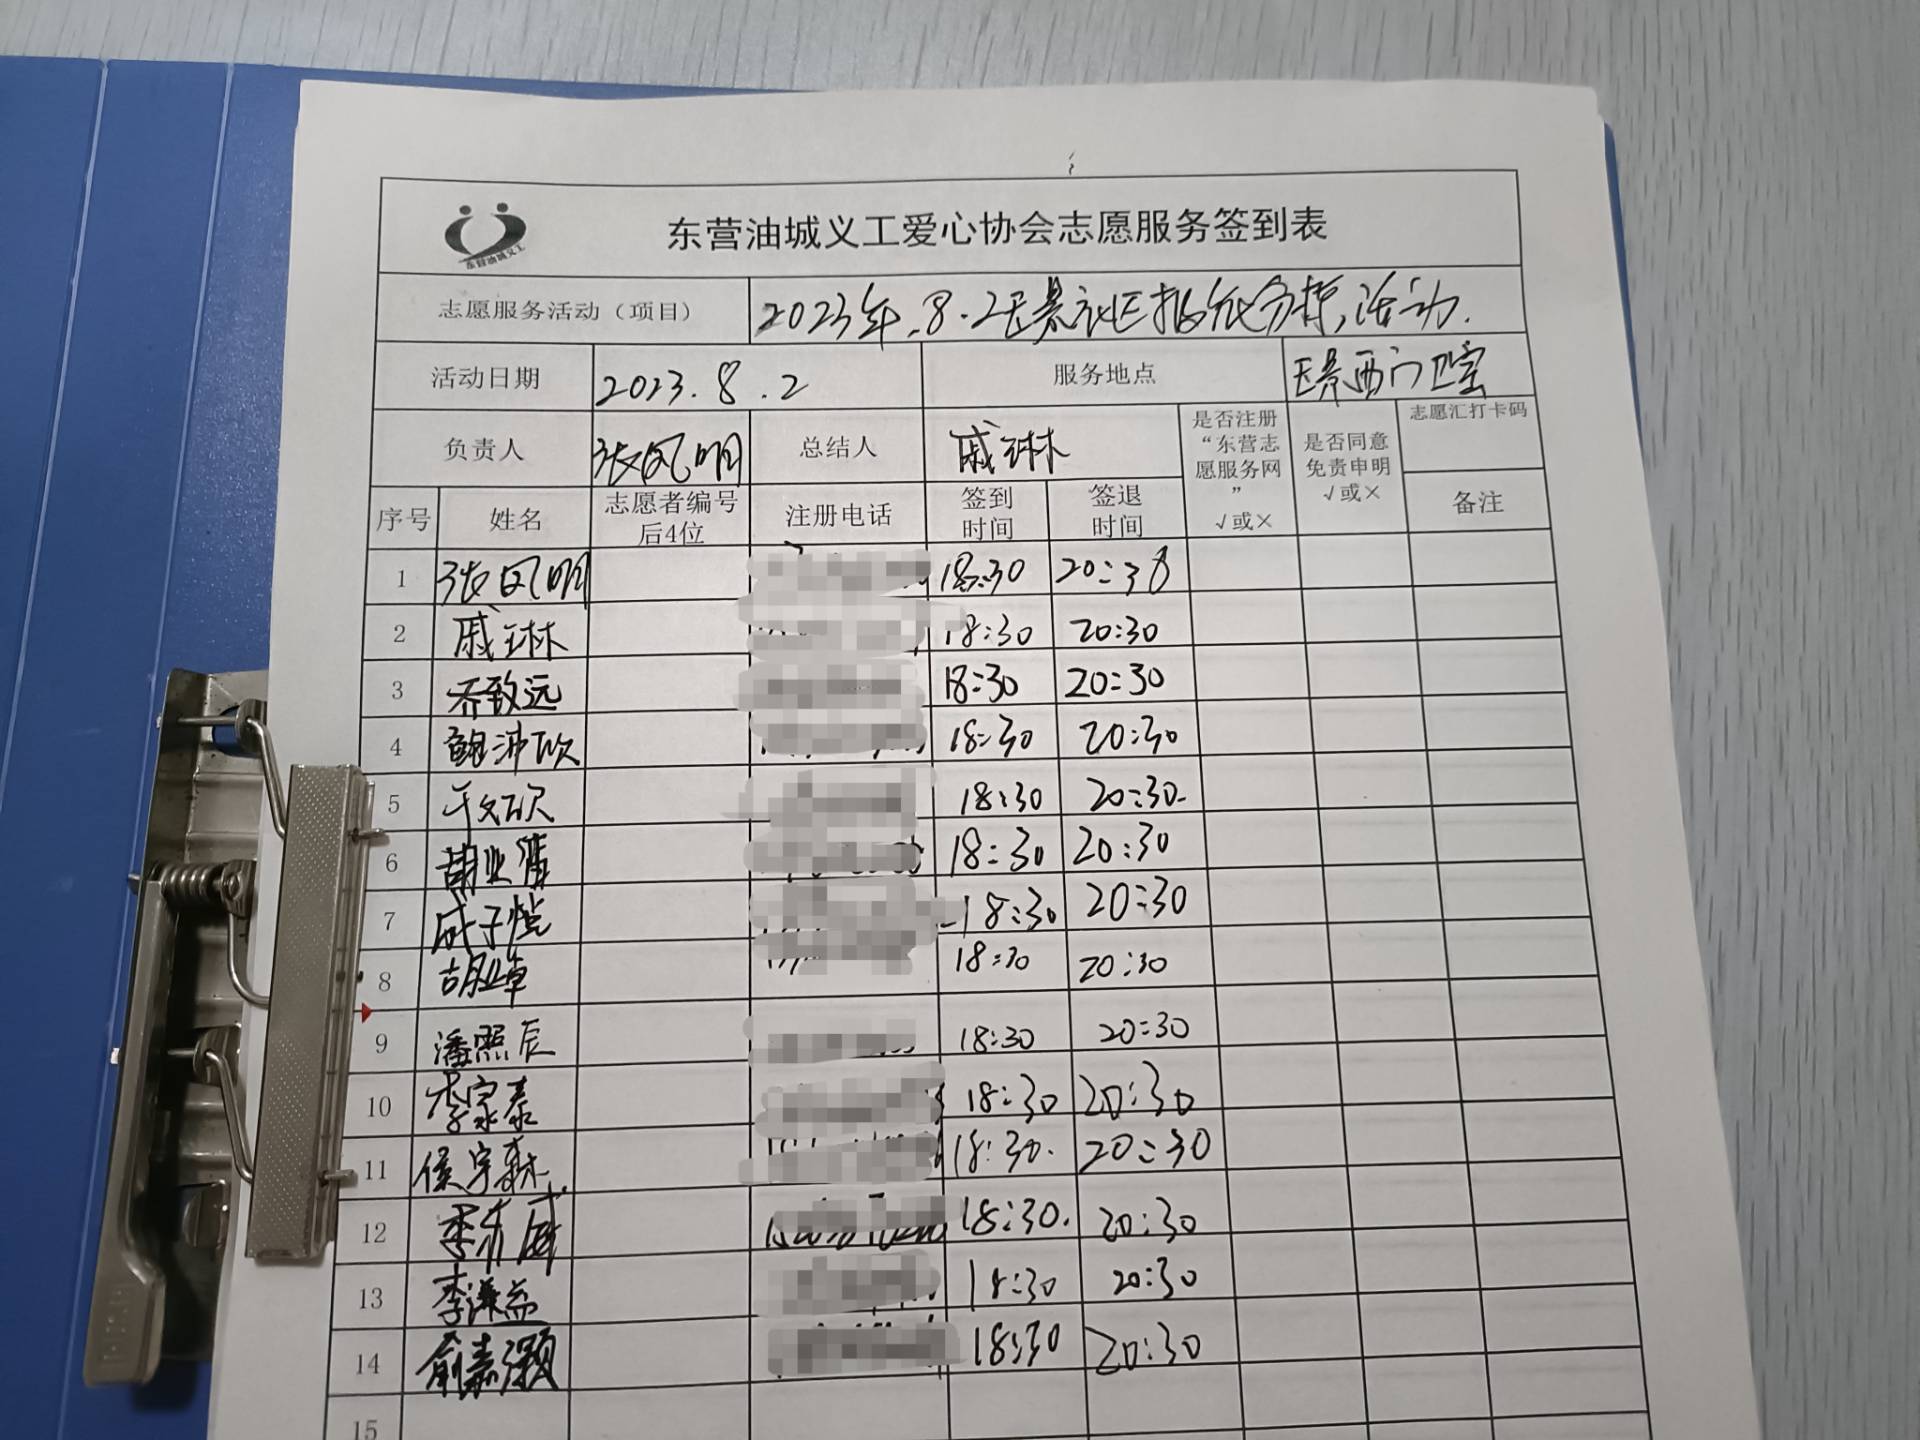 东营油城义工
东营油城义工爱心协会志愿服务签到表
志愿服务活动（项目） 2023年.8.2 活动.
活动日期 2023.8.2 服务地点 景西门卫室
负责人 张凤明 总结人 戚琳 是否注册“东营志愿服务网” √或× 是否同意免责申明 √或× 志愿汇打卡码
序号 姓名 志愿者编号后4位 注册电话 签到时间 签退时间 备注
1 张凤明 18:30 20:38
2 戚琳 18:30 20:30
3 乔致远 18:30 20:30
4 鲍沛欣 18:30 20:30
5 18:30 20:30
6 18:30 20:30
7 18:30 20:30
8 18:30 20:30
9 潘熙辰 18:30 20:30
10 李家泰 18:30 20:30
11 侯宇霖 18:30. 20:30
12 18:30. 20:30
13 李谦益 18:30 20:30
14 俞嘉灏 18:30 20:30
15